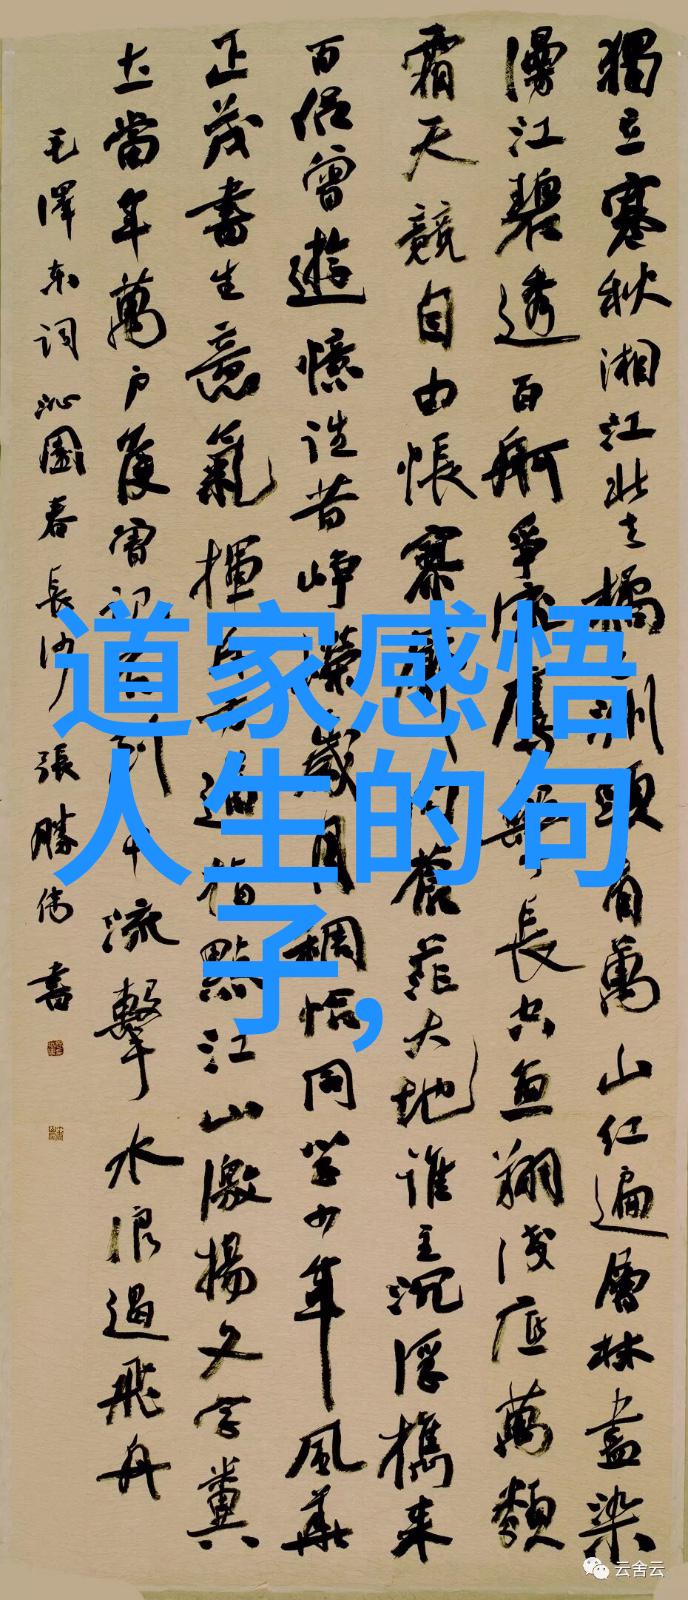 獨立寒秋湘江北去橘子洲頭看萬山红遍層林盡染
漫江碧透百舸爭流鷹擊長空魚翔淺底萬類
霜天競自由悵寥廓問蒼茫大地誰主沉浮攜来
百侣曾遊憶往昔崢嶸歲月稠恰同學少年風華
正茂書生意氣揮斥方遒指點江山激揚文字糞
土當年萬户侯曾記否到中流擊水浪遏飛舟
毛澤东词沁園春長沙張勝偉書
道家感悟
人生的句
子,
云舍云